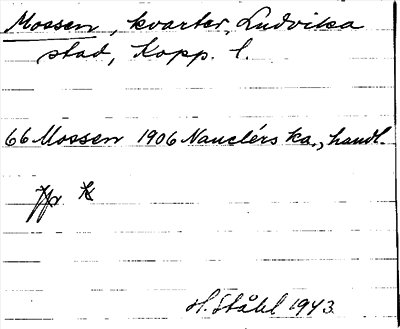 Mossen, kvarter, Ludvika
stad, Kopp. l.
66 Mossen 1906 Nauclérs ka., handl.
Jfr K
H. Ståhl 1943.